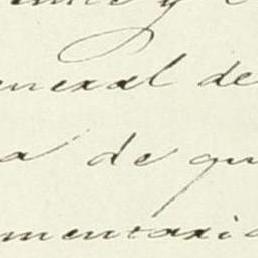 y
eneral de
a de qu
mentaria